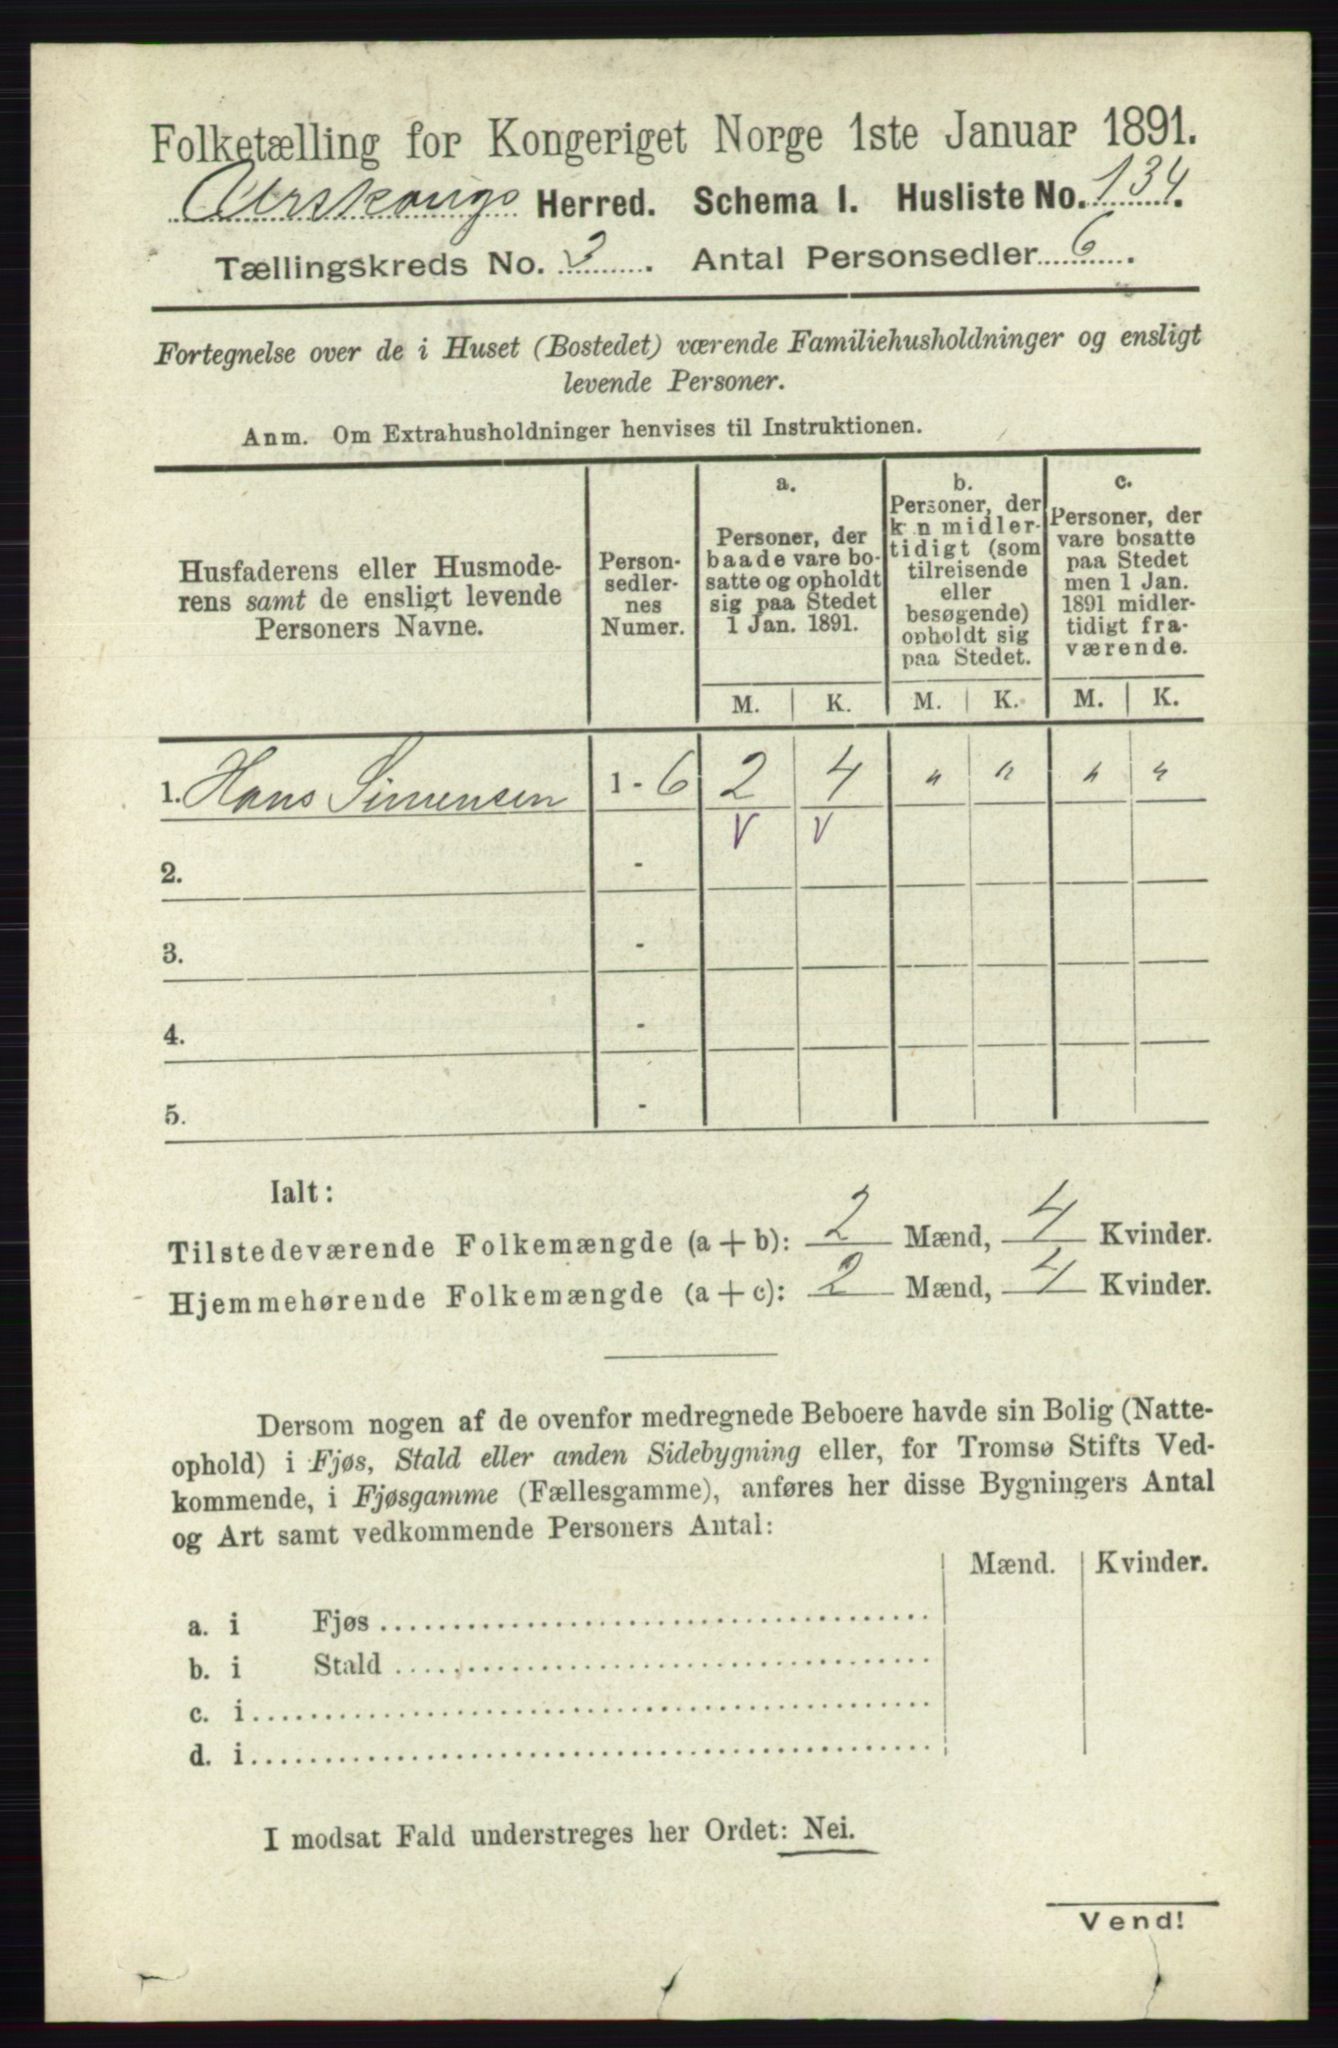 Folketælling for Kongeriget Norge 1ste Januar 1891.
Aurskougs Herred. Schema I. Husliste No. 134.
Tællingskreds No. 3. Antal Personsedler 6.
Fortegnelse over de i Huset (Bostedet) værende Familiehusholdninger og ensligt
levende Personer.
Anm. Om Extrahusholdninger henvises til Instruktionen.
Husfaderens eller Husmode-
rens samt de ensligt levende
Personers Navne.
Person-
sedler-
nes
Numer.
a.
Personer, der
baade vare bo-
satte og opholdt
sig paa Stedet
1 Jan. 1891.
b.
Personer, der
k n midler-
tidigt (som
tilreisende
eller
besøgende)
opholdt sig
paa Stedet.
c.
Personer, der
vare bosatte
paa Stedet
men 1 Jan.
1891 midler-
tidigt fra-
værende.
M. K. M. K. M. K.
1. Hans Simensen 1 - 6 2 4 " " " "
V V
2. -
3. -
4. -
5. -
Ialt:
Tilstedeværende Folkemængde (a + b): 2 Mænd, 4 Kvinder.
Hjemmehørende Folkemængde (a + c): 2 Mænd, 4 Kvinder.
Dersom nogen af de ovenfor medregnede Beboere havde sin Bolig (Natte-
ophold) i Fjøs, Stald eller anden Sidebygning eller, for Tromsø Stifts Ved-
kommende, i Fjøsgamme (Fællesgamme), anføres her disse Bygningers Antal
og Art samt vedkommende Personers Antal:
Mænd. Kvinder.
a. i Fjøs
b. i Stald
c. i
d. i
I modsat Fald understreges her Ordet: Nei.
Vend!